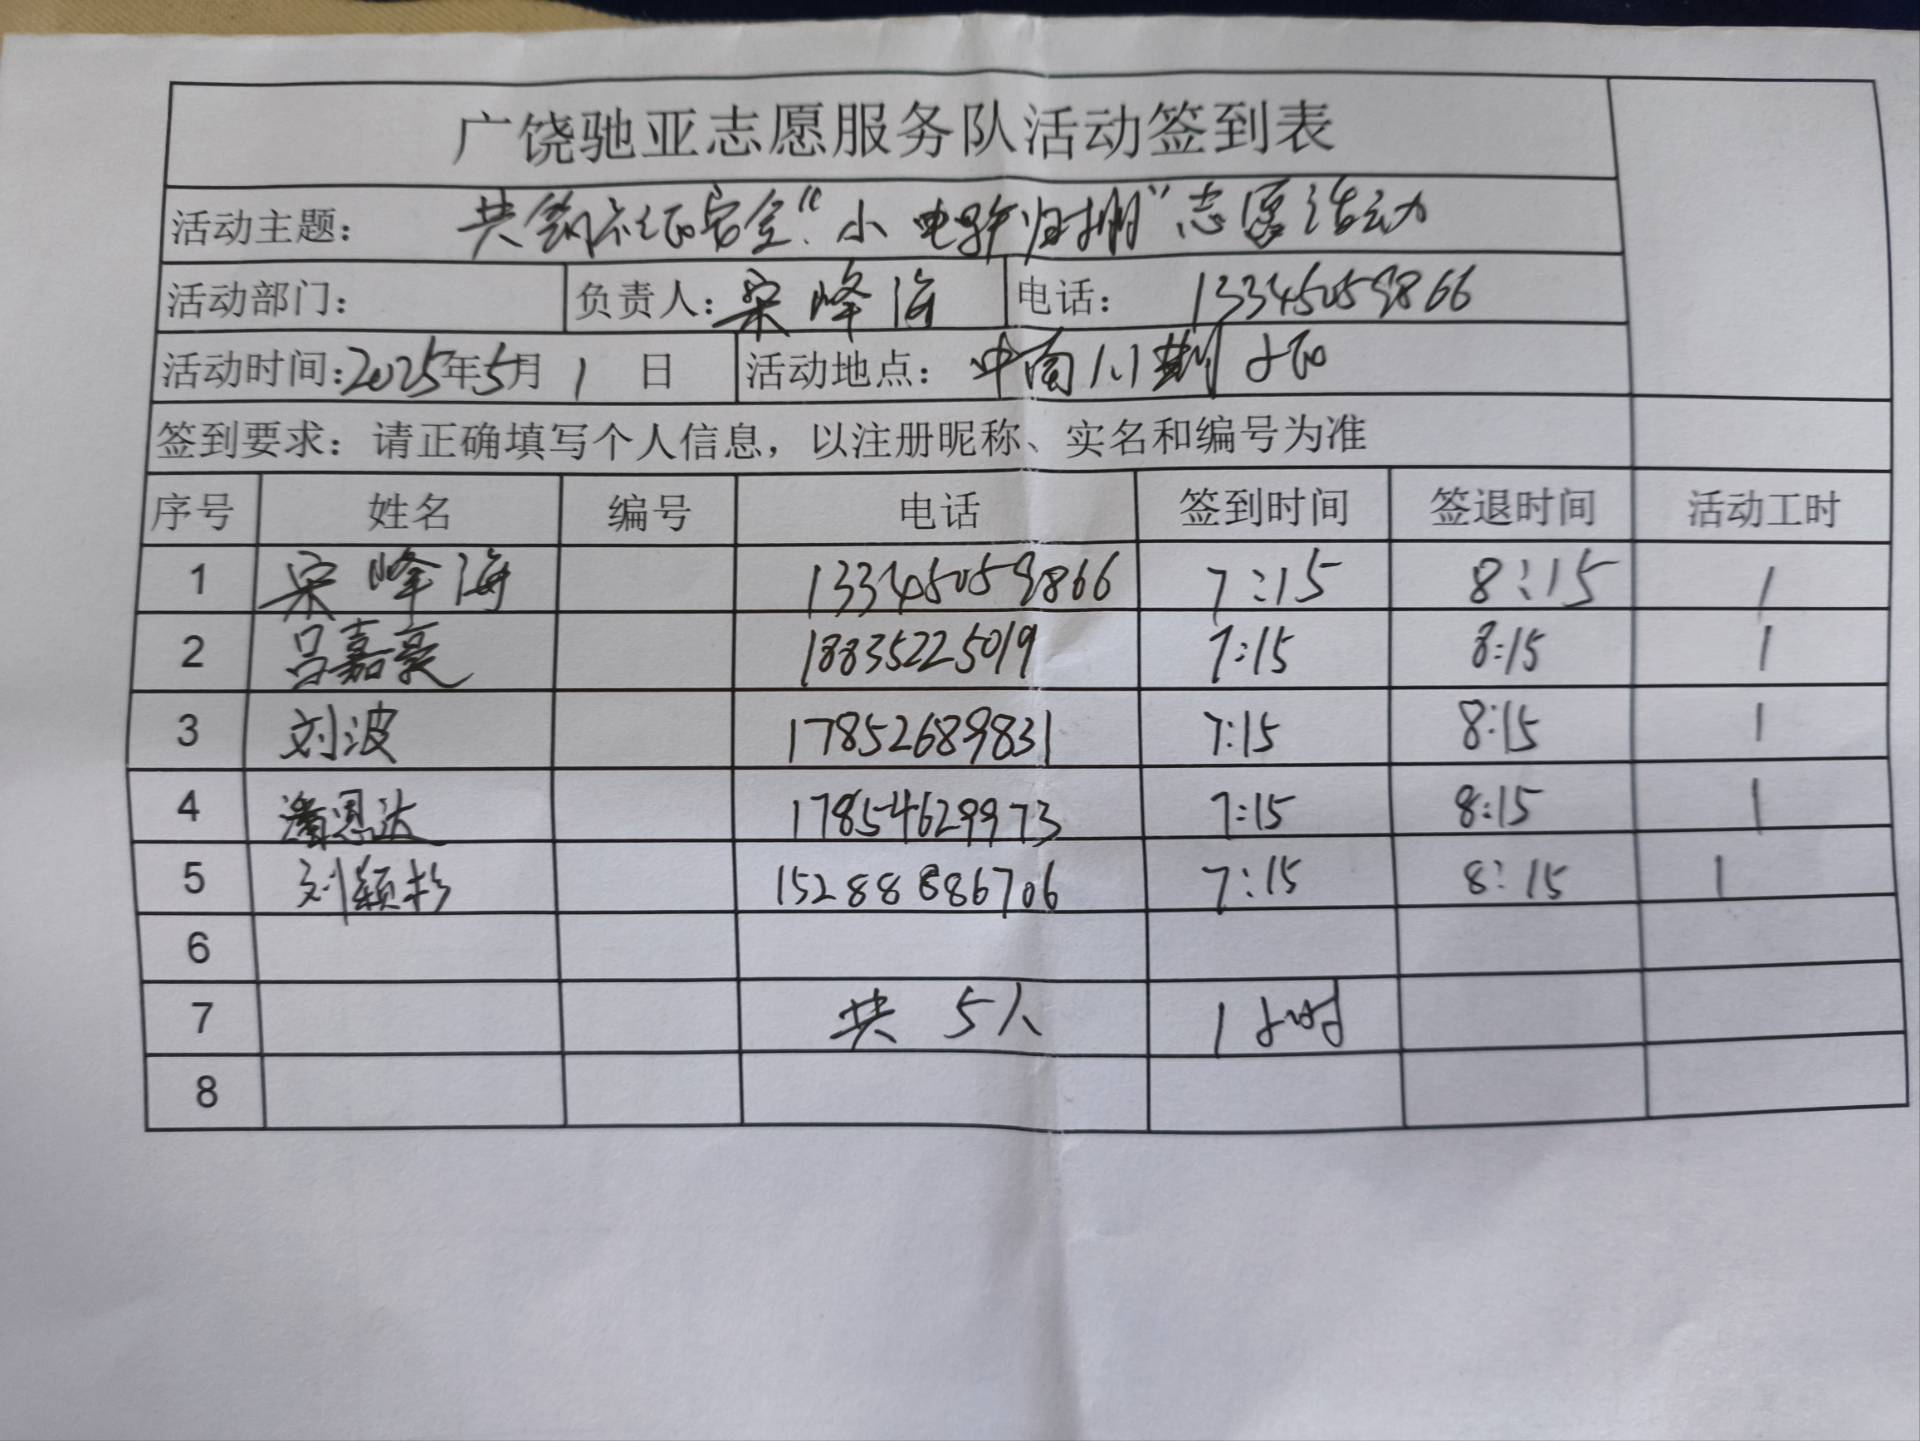 广饶驰亚志愿服务队活动签到表
活动主题: 共创社区安全“小电驴归棚”志愿活动
活动部门: 负责人: 宋峰海 电话: 13345059866
活动时间: 2025年5月1日 活动地点: 中南小区
签到要求: 请正确填写个人信息，以注册昵称、实名和编号为准
序号 姓名 编号 电话 签到时间 签退时间 活动工时
1 宋峰海 13345059866 7:15 8:15 1
2 吕嘉豪 18835225019 7:15 8:15 1
3 刘波 17852689831 7:15 8:15 1
4 潘恩达 17854629973 7:15 8:15 1
5 刘颖杉 15288886706 7:15 8:15 1
6
7 共5人 1小时
8